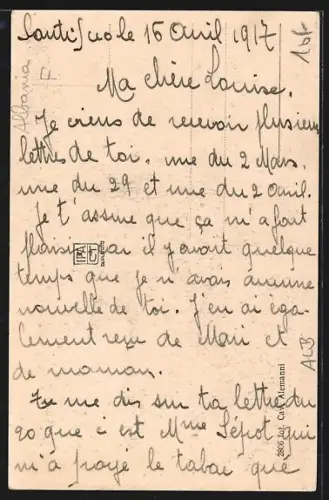 Santi Quo le 15 Avril 1917
Ma chère Louise.
Je viens de recevoir plusieurs
lettres de toi, une du 2 Mars,
une du 29 et une du 2 avril.
Je t'assure que ça m'a fait
plaisir car il y avait quelque
temps que je n'avais aucune
nouvelle de toi. J'en ai éga-
lement reçu de Mari et
de maman.
Tu me dis sur ta lettre du
20 que c'est Mme Sépot qui
m'a payé le tabac que
Albania
F
ALB
2806 Cav. Alemanni